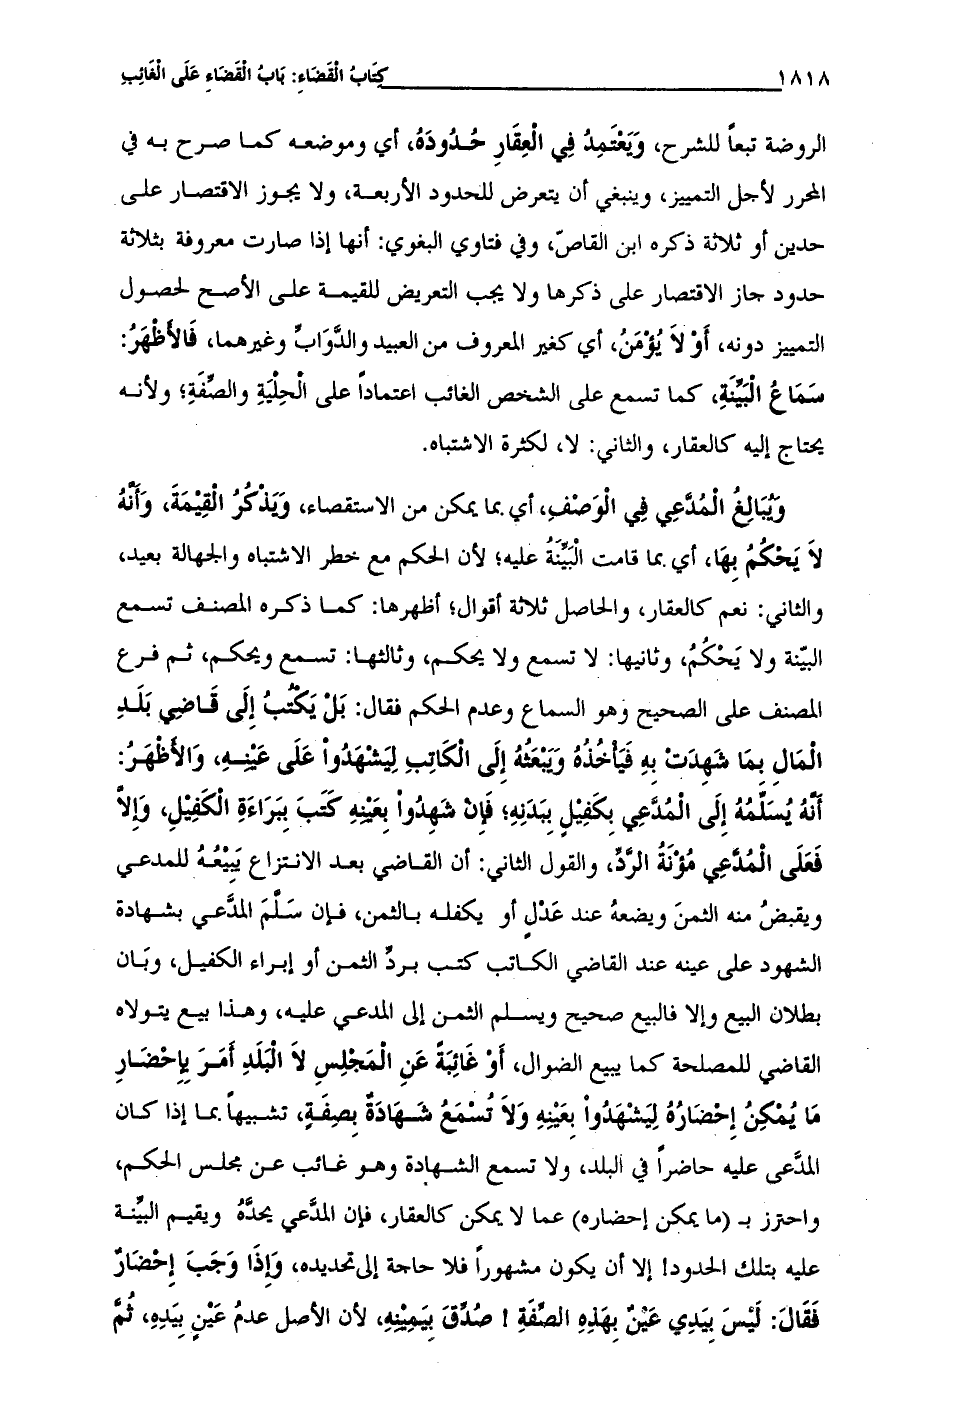 ١٨١٨ كِتَابُ الْقَضَاءِ: بَابُ الْقَضَاءِ عَلَى الْغَائِبِ
الروضة تبعاً للشرح، وَيَعْتَمِدُ فِي الْعِقَارِ حُدُودَهُ، أي وموضعه كما صرح به في
المحرر لأجل التمييز، وينبغي أن يتعرض للحدود الأربعة، ولا يجوز الاقتصار على
حدين أو ثلاثة ذكره ابن القاصّ، وفي فتاوي البغوي: أنها إذا صارت معروفة بثلاثة
حدود جاز الاقتصار على ذكرها ولا يجب التعريض للقيمة على الأصح لحصول
التمييز دونه، أَوْ لاَ يُؤْمَنُ، أي كغير المعروف من العبيد والدَّوَابِّ وغيرهما، فَالأَظْهَرُ:
سَمَاعُ الْبَيِّنَةِ، كما تسمع على الشخص الغائب اعتماداً على الْحِلْيَةِ والصِّفَةِ؛ ولأنه
يحتاج إليه كالعقار، والثاني: لا، لكثرة الاشتباه.
وَيُبَالِغُ الْمُدَّعِي فِي الْوَصْفِ، أي بما يمكن من الاستقصاء، وَيَذْكُرُ الْقِيْمَةَ، وَأَنَّهُ
لاَ يَحْكُمُ بِهَا، أي بما قامت الْبَيِّنَةُ عليه؛ لأن الحكم مع خطر الاشتباه والجهالة بعيد،
والثاني: نعم كالعقار، والحاصل ثلاثة أقوال؛ أظهرها: كما ذكره المصنف تسمع
البيّنة ولا يَحْكُمُ، وثانيها: لا تسمع ولا يحكم، وثالثها: تسمع ويحكم، ثم فرع
المصنف على الصحيح وهو السماع وعدم الحكم فقال: بَلْ يَكْتُبُ إِلَى قَاضِي بَلَدِ
الْمَالِ بِمَا شَهِدَتْ بِهِ فَيَأْخُذُهُ وَيَبْعَثُهُ إِلَى الْكَاتِبِ لِيَشْهَدُواْ عَلَى عَيْنِهِ، وَالأَظْهَرُ:
أَنَّهُ يُسَلِّمُهُ إِلَى الْمُدَّعِي بِكَفِيْلٍ بِبَدَنِهِ؛ فَإِنْ شَهِدُواْ بِعَيْنِهِ كَتَبَ بِبَرَاءَةِ الْكَفِيْلِ، وَإِلاَّ
فَعَلَى الْمُدَّعِي مُؤْنَةُ الرَّدِّ، والقول الثاني: أن القاضي بعد الانتزاع يَبْيْعُهُ للمدعي
ويقبضُ منه الثمنَ ويضعهُ عند عَدْلٍ أو يكفله بالثمن، فإن سَلَّمَ المدَّعي بشهادة
الشهود على عينه عند القاضي الكاتب كتب بردِّ الثمن أو إبراء الكفيل، وبَان
بطلان البيع وإلا فالبيع صحيح ويسلم الثمن إلى المدعي عليه، وهذا بيع يتولاه
القاضي للمصلحة كما يبيع الضوال، أَوْ غَائِبَةً عَنِ الْمَجْلِسِ لاَ الْبَلَدِ أَمَرَ بِإِحْضَارِ
مَا يُمْكِنُ إِحْضَارُهُ لِيَشْهَدُواْ بِعَيْنِهِ وَلاَ تُسْمَعُ شَهَادَةٌ بِصِفَةٍ، تشبيهاً بما إذا كان
المدَّعى عليه حاضراً في البلد، ولا تسمع الشهادة وهو غائب عن مجلس الحكم،
واحترز بـ (ما يمكن إحضاره) عما لا يمكن كالعقار، فإن المدَّعي يحدَّهُ ويقيم البيِّنة
عليه بتلك الحدود! إلا أن يكون مشهوراً فلا حاجة إلى تحديده، وَإِذَا وَجَبَ إِحْضَارٌ
فَقَالَ: لَيْسَ بِيَدِي عَيْنٌ بِهَذِهِ الصِّفَةِ ! صُدِّقَ بِيَمِيْنِهِ، لأن الأصل عدمُ عَيْنٍ بِيَدِهِ، ثُمَّ